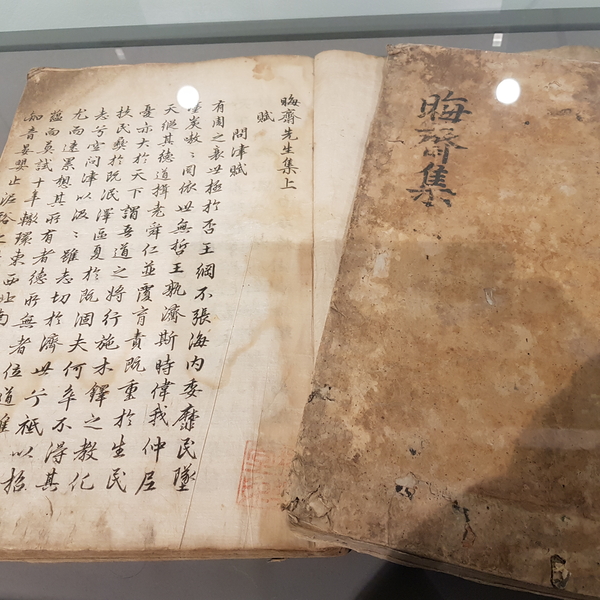 晦齋集
晦齋先生集上
賦
問津賦
有周之衰世極於否王綱不張海内委靡民墜
炭嗷〻罔依世無哲王孰濟斯時偉我仲尼
天縱其德道揖老舜仁並覆育責既重於生民
憂亦大於天下謂吾道之將行施木鐸之教化
扶民彝於既泯澤區夏於既涸夫何卒不得其
志兮空問津以汲〻雖志切於濟世兮祗以招
尤而速累想其所有者德所無者位道
蘊而莫試十年轍環東西北南
知音晏嬰止泥